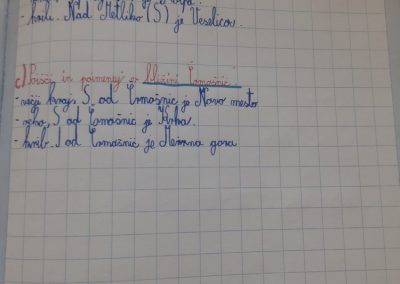 - hrib. Nad Metliko (S) je Veselica.
c) Poišči in poimenuj v bližini Črmošnjic
- večji kraj, S od Črmošnjic je Novo mesto
- reko, S od Črmošnjic je Krka.
- hrib J od Črmošnjic je Mirna gora